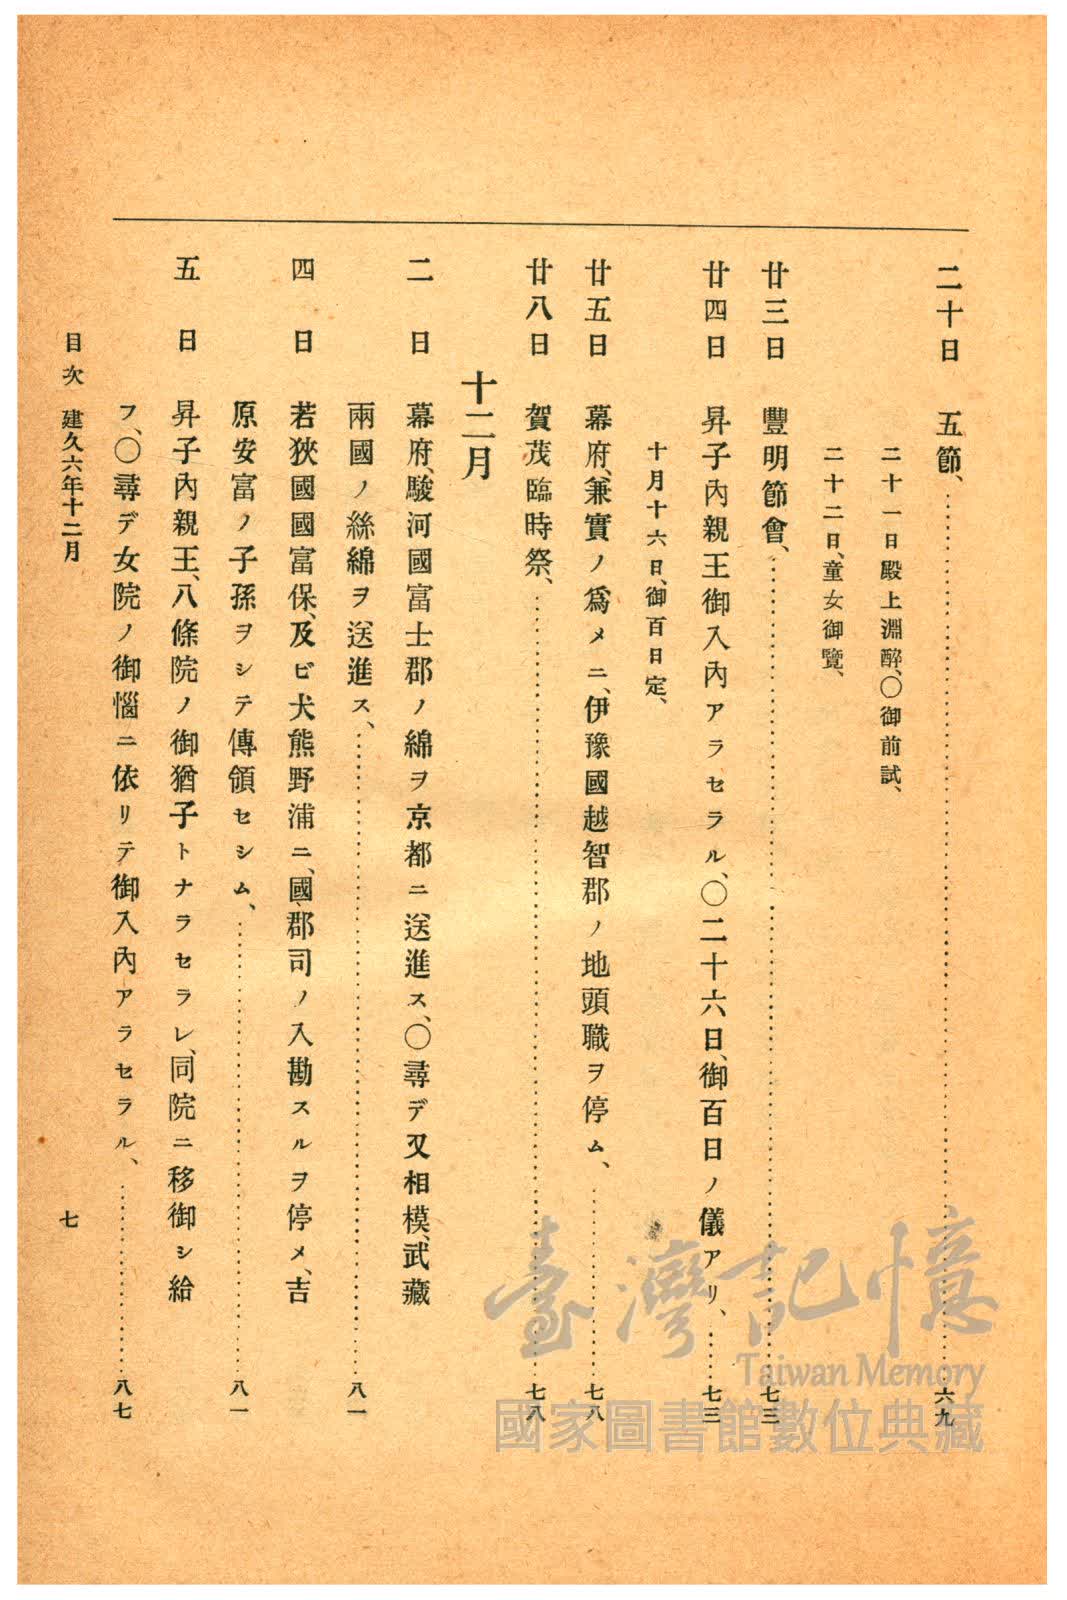 二十日　五節、……六九
二十一日殿上淵醉、〇御前試、
二十二日、童女御覽、
廿三日　豐明節會、……七三
廿四日　昇子內親王御入內アラセラル、〇二十六日、御百日ノ儀アリ、……七三
十月十六日、御百日定、
廿五日　幕府、兼實ノ爲メニ、伊豫國越智郡ノ地頭職ヲ停ム、……七八
廿八日　賀茂臨時祭、……七八
十二月
二日　幕府、駿河國富士郡ノ綿ヲ京都ニ送進ス、〇尋デ又相模、武藏
兩國ノ絲綿ヲ送進ス、……八一
四日　若狹國國富保、及ビ犬熊野浦ニ、國、郡司ノ入勘スルヲ停メ、吉
原安富ノ子孫ヲシテ傳領セシム、……八一
五日　昇子內親王、八條院ノ御猶子トナラセラレ、同院ニ移御シ給
フ、〇尋デ女院ノ御惱ニ依リテ御入內アラセラル、……八七
目次　建久六年十二月　七
臺灣記憶
Taiwan Memory
國家圖書館數位典藏